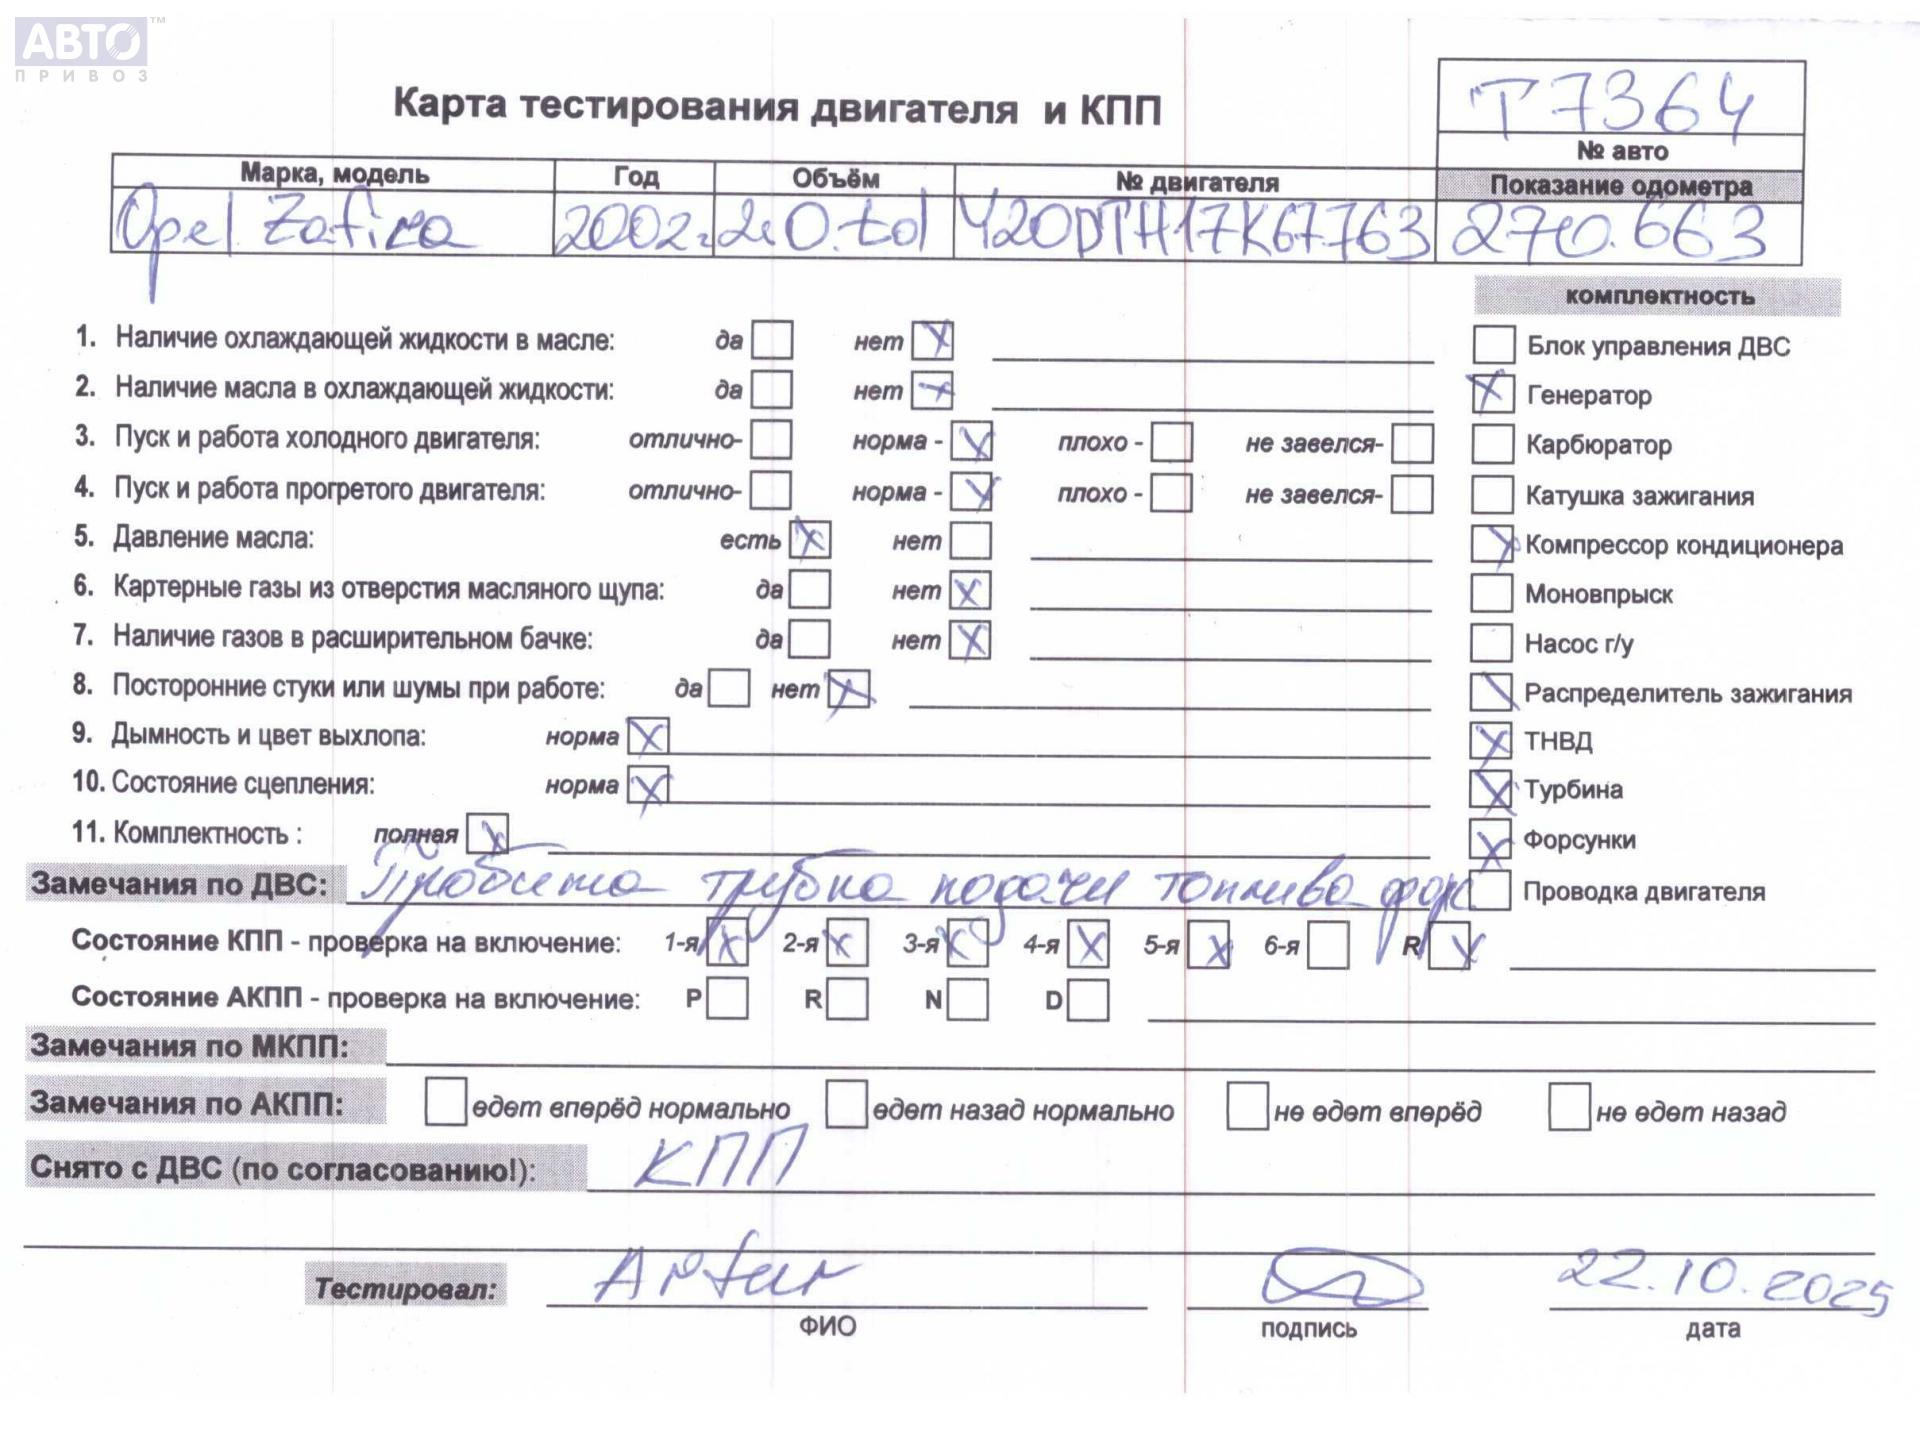 АВТО™
ПРИВОЗ
Карта тестирования двигателя и КПП
T7364
№ авто
Марка, модель Год Объём № двигателя Показание одометра
Opel Zafira 2002г. 2.0.td Y20DTH17K67763 270.663
комплектность
1. Наличие охлаждающей жидкости в масле: да нет X Блок управления ДВС
2. Наличие масла в охлаждающей жидкости: да нет X X Генератор
3. Пуск и работа холодного двигателя: отлично- норма - X плохо - не завелся- Карбюратор
4. Пуск и работа прогретого двигателя: отлично- норма - X плохо - не завелся- Катушка зажигания
5. Давление масла: есть X нет X Компрессор кондиционера
6. Картерные газы из отверстия масляного щупа: да нет X Моновпрыск
7. Наличие газов в расширительном бачке: да нет X Насос г/у
8. Посторонние стуки или шумы при работе: да нет X \ Распределитель зажигания
9. Дымность и цвет выхлопа: норма X X ТНВД
10. Состояние сцепления: норма X X Турбина
11. Комплектность : полная X X Форсунки
Замечания по ДВС: Пробита трубка подачи топлива форс Проводка двигателя
Состояние КПП - проверка на включение: 1-я X 2-я X 3-я X 4-я X 5-я X 6-я R X
Состояние АКПП - проверка на включение: P R N D
Замечания по МКПП:
Замечания по АКПП: едет вперёд нормально едет назад нормально не едет вперёд не едет назад
Снято с ДВС (по согласованию!): КПП
Тестировал: Artur 22.10.2025
ФИО подпись дата